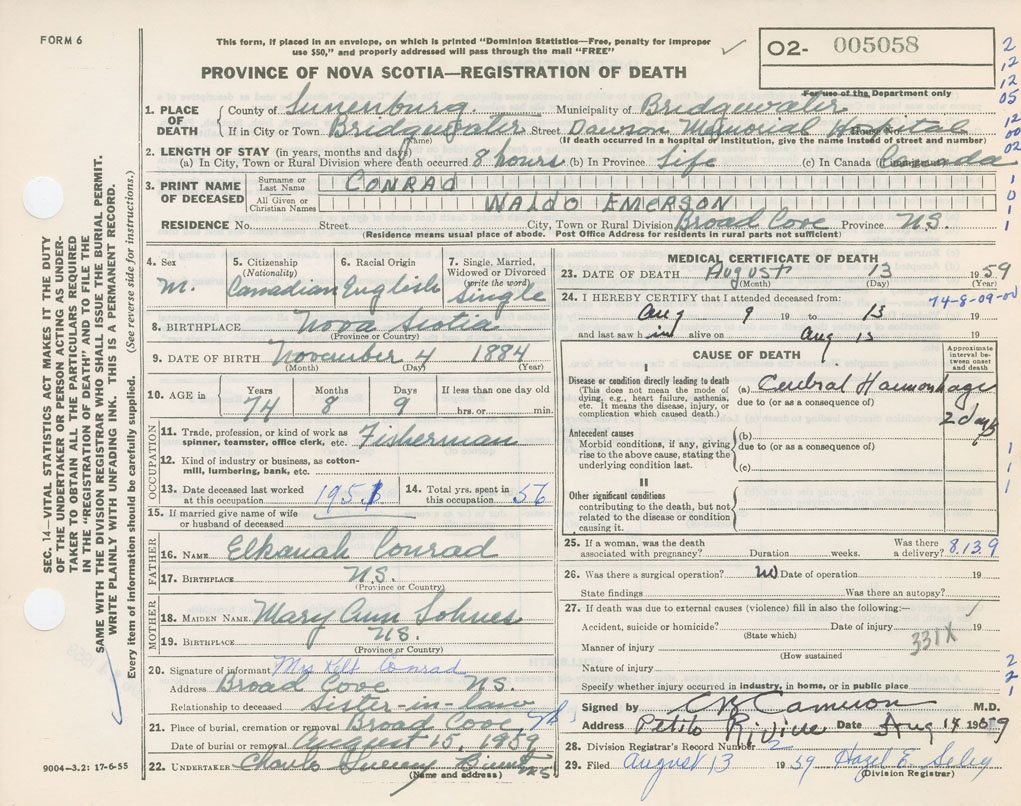 FORM 6
This form, if placed in an envelope, on which is printed "Dominion Statistics—Free, penalty for improper
use $50," and properly addressed will pass through the mail "FREE"
O2- 005058
For use of the Department only
PROVINCE OF NOVA SCOTIA—REGISTRATION OF DEATH
2
12
12
05
12
00
02
1
0
1
1
1. PLACE OF DEATH
County of Lunenburg Municipality of Bridgewater
If in City or Town Bridgewater Street Dawson Memorial Hospital House No.
(Name) (If death occurred in a hospital or institution, give the name instead of street and number)
2. LENGTH OF STAY (in years, months and days)
(a) In City, Town or Rural Division where death occurred 8 hours (b) In Province Life (c) In Canada Canada
3. PRINT NAME OF DECEASED
Surname or Last Name CONRAD
All Given or Christian Names WALDO EMERSON
RESIDENCE No. Street City, Town or Rural Division Broad Cove Province N.S.
(Residence means usual place of abode. Post Office Address for residents in rural parts not sufficient)
4. Sex
M.
5. Citizenship (Nationality)
Canadian
6. Racial Origin
English
7. Single, Married, Widowed or Divorced (write the word)
Single
8. BIRTHPLACE Nova Scotia
(Province or Country)
9. DATE OF BIRTH November 4 1884
(Month) (Day) (Year)
10. AGE in
Years 74
Months 8
Days 9
If less than one day old
hrs. or min.
OCCUPATION
11. Trade, profession, or kind of work as spinner, teamster, office clerk, etc. Fisherman
12. Kind of industry or business, as cotton-mill, lumbering, bank, etc.
13. Date deceased last worked at this occupation
14. Total yrs. spent in this occupation 56
15. If married give name of wife or husband of deceased
FATHER
16. NAME Elkanah Conrad
17. BIRTHPLACE N.S.
(Province or Country)
MOTHER
18. MAIDEN NAME Mary Ann
19. BIRTHPLACE N.S.
(Province or Country)
20. Signature of informant Mrs Conrad
Address Broad Cove N.S.
Relationship to deceased Sister-in-law
21. Place of burial, cremation or removal Broad Cove
Date of burial or removal August 15, 1959
22. UNDERTAKER
(Name and address)
MEDICAL CERTIFICATE OF DEATH
23. DATE OF DEATH August 13 1959
(Month) (Day) (Year)
24. I HEREBY CERTIFY that I attended deceased from:
74-8-09-00
Aug 9 19 to 13 19
and last saw him alive on Aug 13 19
CAUSE OF DEATH
Approximate interval between onset and death
I
Disease or condition directly leading to death
(This does not mean the mode of dying, e.g., heart failure, asthenia, etc. It means the disease, injury, or complication which caused death.)
(a) Cerebral Haemorrhage
due to (or as a consequence of)
2 days
Antecedent causes
Morbid conditions, if any, giving rise to the above cause, stating the underlying condition last.
(b)
due to (or as a consequence of)
(c)
1
1
1
II
Other significant conditions
contributing to the death, but not related to the disease or condition causing it.
25. If a woman, was the death associated with pregnancy? Duration weeks. Was there a delivery? 8.13.9
26. Was there a surgical operation? no Date of operation 19
State findings Was there an autopsy?
27. If death was due to external causes (violence) fill in also the following:—
Accident, suicide or homicide? Date of injury 19
(State which)
331X
Manner of injury
(How sustained)
Nature of injury
Specify whether injury occurred in industry, in home, or in public place
2
2
1
Signed by Cameron M.D.
Address Petite Riviere Date Aug 14 1959
28. Division Registrar's Record Number 2
29. Filed August 13 1959 Hazel E. Seley
(Division Registrar)
SEC. 14—VITAL STATISTICS ACT MAKES IT THE DUTY
OF THE UNDERTAKER OR PERSON ACTING AS UNDER-
TAKER TO OBTAIN ALL THE PARTICULARS REQUIRED
IN THE "REGISTRATION OF DEATH" AND FILE THE
SAME WITH THE DIVISION REGISTRAR WHO SHALL ISSUE THE BURIAL PERMIT.
WRITE PLAINLY WITH UNFADING INK. THIS IS A PERMANENT RECORD.
Every item of information should be carefully supplied. (See reverse side for instructions.)
9004-3.2: 17-6-55